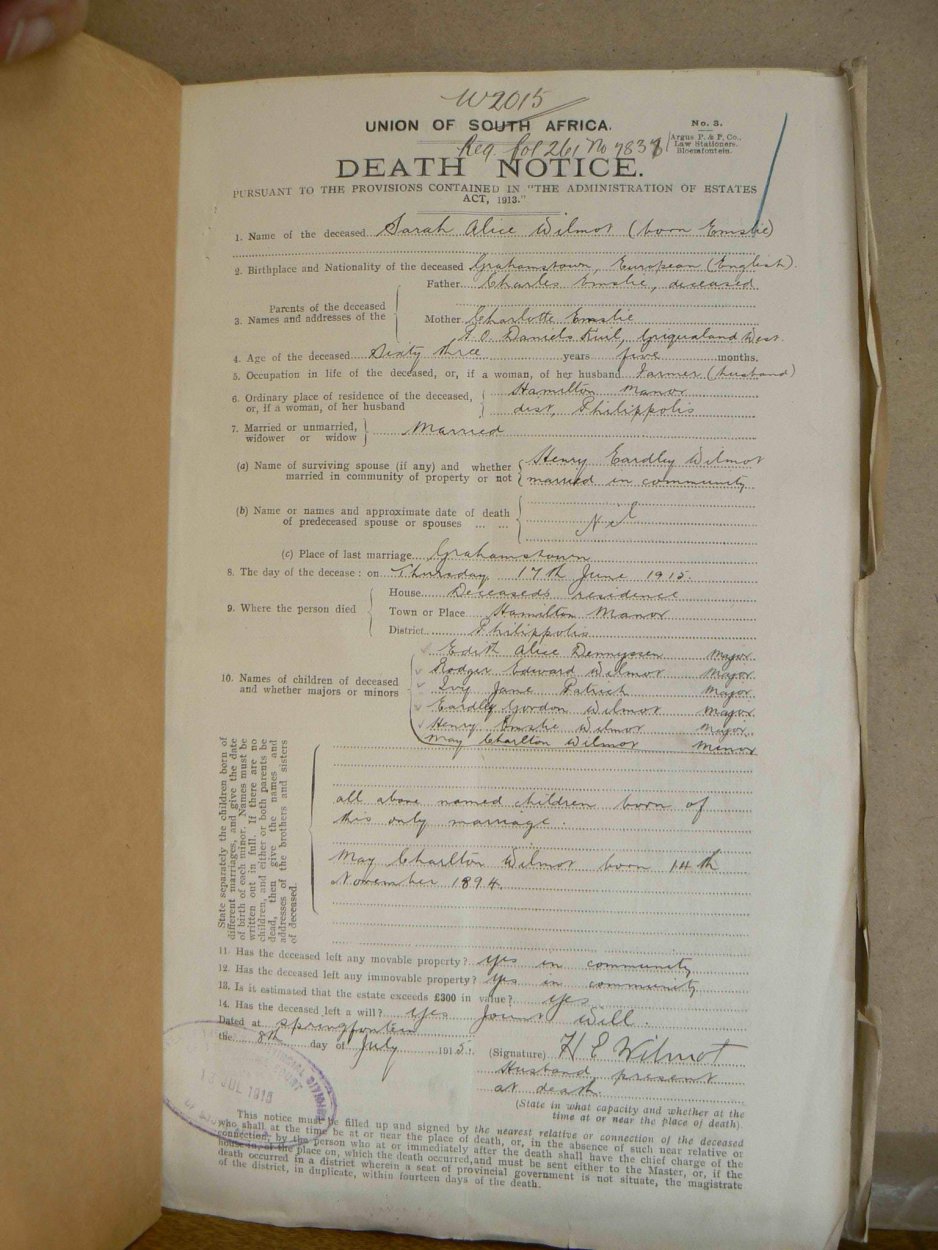 W2015
UNION OF SOUTH AFRICA.
No. 3.
Argus P. & P. Co.,
Law Stationers.
Bloemfontein.
Reg fol 261 No 7837
DEATH NOTICE.
PURSUANT TO THE PROVISIONS CONTAINED IN "THE ADMINISTRATION OF ESTATES
ACT, 1913."
1. Name of the deceased Sarah Alice Wilmot (born Emslie)
2. Birthplace and Nationality of the deceased Grahamstown, European (English).
3. Names and addresses of the Parents of the deceased
Father Charles Emslie, deceased
Mother Charlotte Emslie
P.O. Daniels Kuil, Griqualand West
4. Age of the deceased Sixty three years five months.
5. Occupation in life of the deceased, or, if a woman, of her husband Farmer (husband)
6. Ordinary place of residence of the deceased, Hamilton Manor
or, if a woman, of her husband dist, Philippolis
7. Married or unmarried,
widower or widow Married
(a) Name of surviving spouse (if any) and whether Henry Eardley Wilmot
married in community of property or not married in community
(b) Name or names and approximate date of death
of predeceased spouse or spouses ... ... Nil
(c) Place of last marriage Grahamstown
8. The day of the decease: on Thursday 17th June 1915.
9. Where the person died
House Deceaseds residence
Town or Place Hamilton Manor
District Philippolis
10. Names of children of deceased
and whether majors or minors
Edith Alice Dennyssen Major
Rodger Edward Wilmot Major
Ivy Jane Patrick Major
Eardley Gordon Wilmot Major
Henry Emslie Wilmot Major
May Charlton Wilmot Minor
State separately the children born of
different marriages, and give the date
of birth of each minor. Names must be
written out in full. If there are no
children, and either or both parents be
dead, then give the names and
addresses of the brothers and sisters
of deceased.
all above named children born of
this only marriage.
May Charlton Wilmot born 14th
November 1894
11. Has the deceased left any movable property? Yes in community
12. Has the deceased left any immovable property? Yes in community
13. Is it estimated that the estate exceeds £300 in value? Yes
14. Has the deceased left a will? Yes Joint Will.
Dated at Springfontein
the 8th day of July 1915.
(Signature) H E Wilmot
Husband present
at death
(State in what capacity and whether at the
time at or near the place of death)
JUL 1915
This notice must be filled up and signed by the nearest relative or connection of the deceased
who shall at the time be at or near the place of death, or, in the absence of such near relative or
connection, by the person who at or immediately after the death shall have the chief charge of the
house in, or the place on, which the death occurred, and must be sent either to the Master, or, if the
death occurred in a district wherein a seat of provincial government is not situate, the magistrate
of the district, in duplicate, within fourteen days of the death.